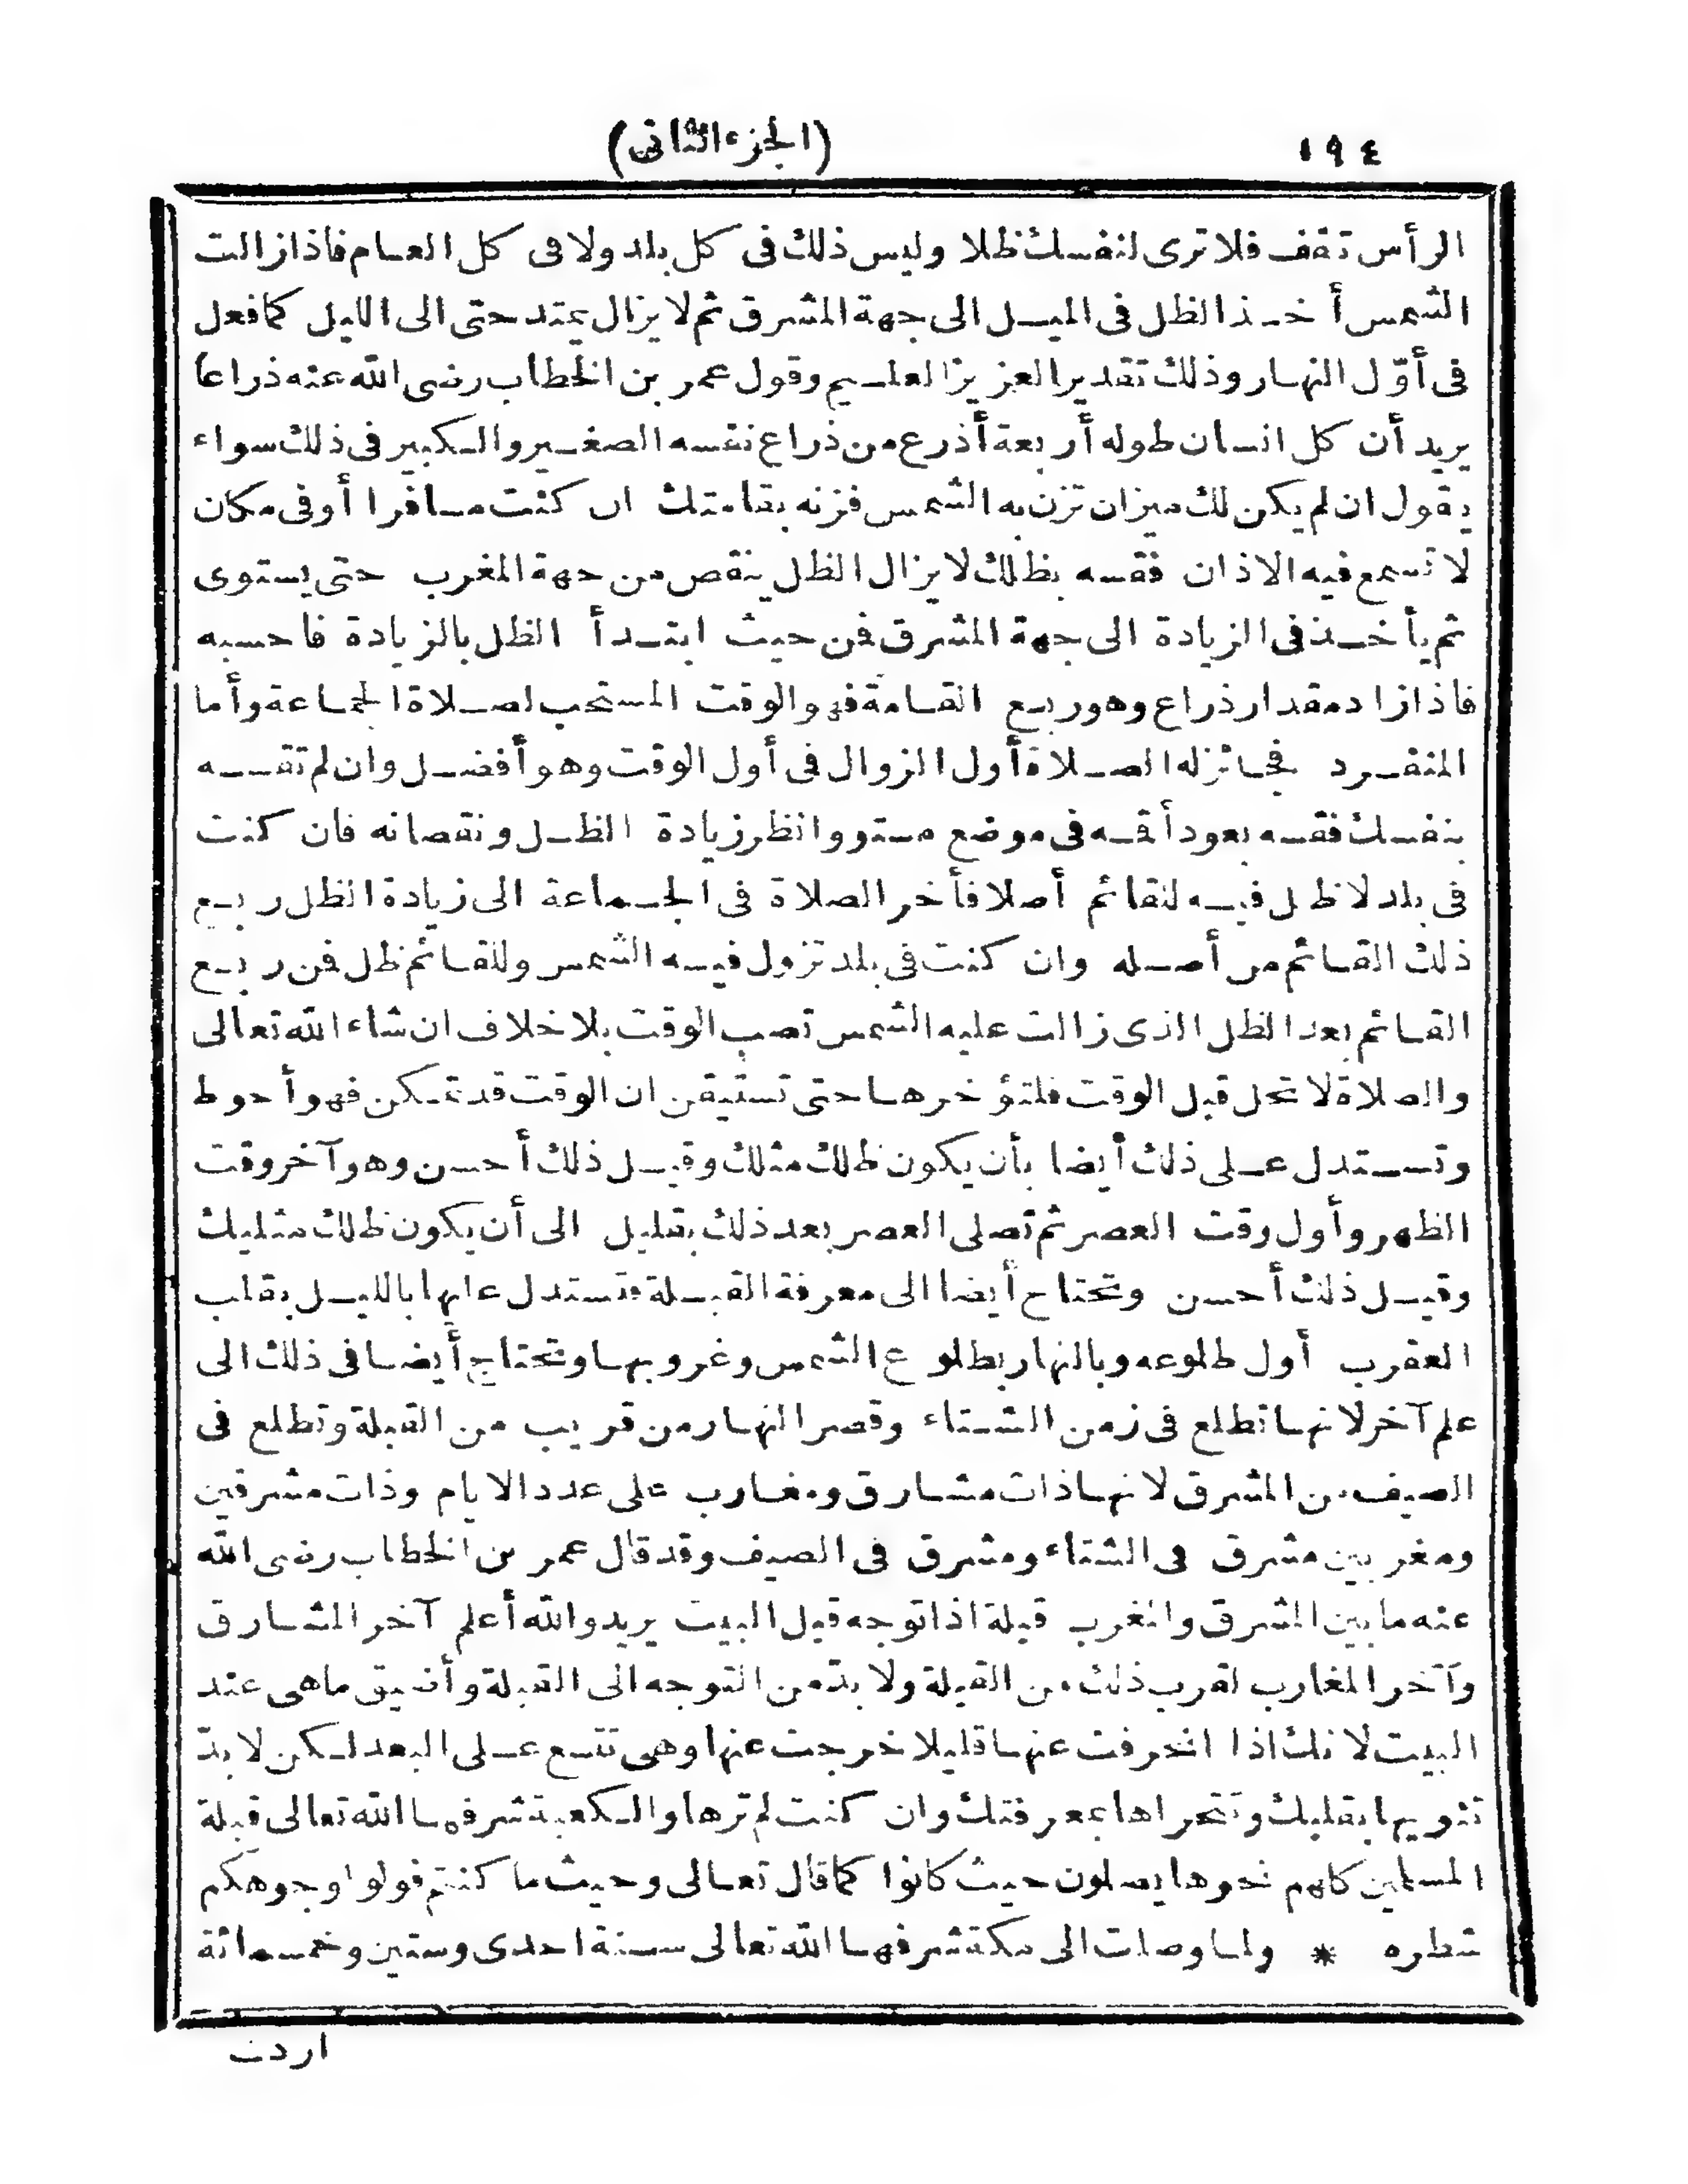 ١٩٤ (الجزء الثانى)
الرأس تقف فلا ترى لنفسك ظلا وليس ذلك فى كل بلد ولا فى كل العام فاذا زالت
الشمس أخذ الظل فى الميل الى جهة المشرق ثم لا يزال يمتد حتى الى الليل كما فعل
فى أوّل النهار وذلك تقدير العزيز العليم وقول عمر بن الخطاب رضى الله عنه ذراعا
يريد أن كل انسان طوله أربعة أذرع من ذراع نفسه الصغير والكبير فى ذلك سواء
يقول ان لم يكن لك ميزان تزن به الشمس فزنه بقامتك ان كنت مسافرا أو فى مكان
لا تسمع فيه الاذان فقسه بظلك لا يزال الظل ينقص من جهة المغرب حتى يستوى
ثم يأخذ فى الزيادة الى جهة المشرق فمن حيث ابتدأ الظل بالزيادة فاحسبه
فاذا زاد مقدار ذراع وهو ربع القامة فهو الوقت المستحب لصلاة الجماعة وأما
المنفرد فجائز له الصلاة أول الزوال فى أول الوقت وهو أفضل وان لم تقسه
بنفسك فقسه بعود أقمه فى موضع مستو وانظر زيادة الظل ونقصانه فان كنت
فى بلد لا ظل فيه لقائم أصلا فأخر الصلاة فى الجماعة الى زيادة الظل ربع
ذلك القائم من أصله وان كنت فى بلد تزول فيه الشمس وللقائم ظل فمن ربع
القائم بعد الظل الذى زالت عليه الشمس تصب الوقت بلا خلاف ان شاء الله تعالى
والصلاة لا تحل قبل الوقت فلتؤخرها حتى تستيقن ان الوقت قد تمكن فهو أحوط
وتستدل على ذلك أيضا بأن يكون ظلك مثلك وقبل ذلك أحسن وهو آخر وقت
الظهر وأول وقت العصر ثم تصلى العصر بعد ذلك بقليل الى أن يكون ظلك مثليك
وقبل ذلك أحسن وتحتاج أيضا الى معرفة القبلة فتستدل عليها بالليل بقلب
العقرب أول طلوعه وبالنهار بطلوع الشمس وغروبها وتحتاج أيضا فى ذلك الى
علم آخر لانها تطلع فى زمن الشتاء وقصر النهار من قريب من القبلة وتطلع فى
الصيف من المشرق لانها ذات مشارق ومغارب على عدد الايام وذات مشرقين
ومغربين مشرق فى الشتاء ومشرق فى الصيف وقد قال عمر بن الخطاب رضى الله
عنه ما بين المشرق والمغرب قبلة اذا توجه قبل البيت يريد والله أعلم آخر المشارق
وآخر المغارب لقرب ذلك من القبلة ولا بدّ من التوجه الى القبلة وأضيق ما هى عند
البيت لانك اذا انحرفت عنها قليلا خرجت عنها وهى تتسع على البعد لكن لا بدّ
تنويها بقلبك وتتحراها بمعرفتك وان كنت لم ترها والكعبة شرفها الله تعالى قبلة
المسلمين كلهم نحوها يصلون حيث كانوا كما قال تعالى وحيث ما كنتم فولوا وجوهكم
شطره * ولما وصلت الى مكة شرفها الله تعالى سنة احدى وستين وخمسمائة
اردت